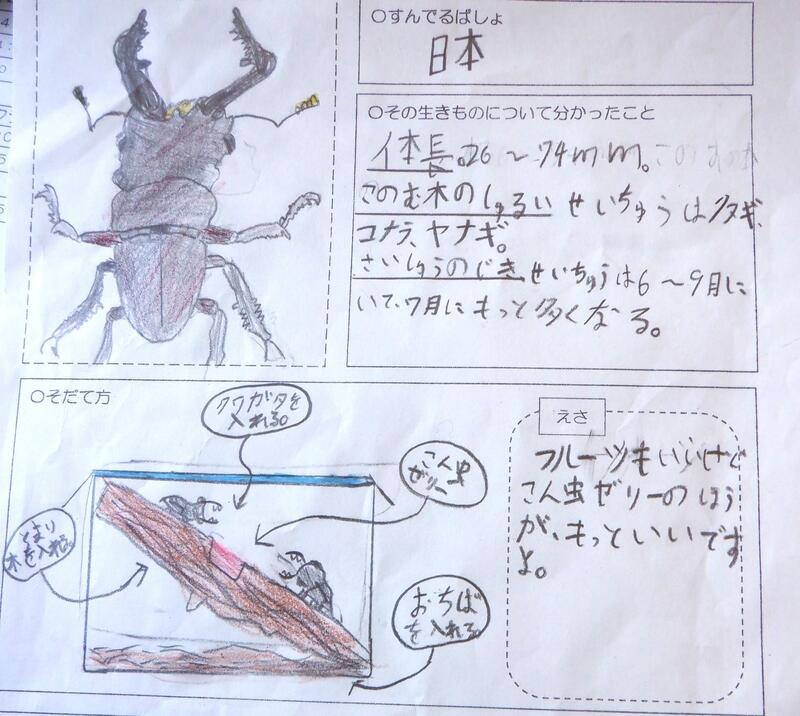 ○すんでるばしょ
日本
○その生きものについて分かったこと
体長。26～74mm。
このむ木のしゅるい せいちゅうはクヌギ、
コナラ、ヤナギ。
さいしゅうのじき せいちゅうは6～9月に
いて、7月にもっと多くなる。
○そだて方
クワガタを
入れる。
こん虫
ゼリー
とまり
木を入れる。
おちば
を入れる。
えさ
フルーツもいいけど
こん虫ゼリーのほう
が、もっといいです
よ。